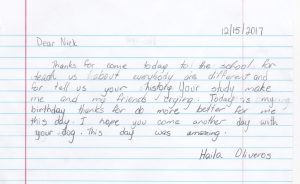 12/15/2017
Dear Nick
Thanks for come today to the school for
teach us about everybody are different and
for tell us your history. Your study make
me and my friends crying. Today is my
birthday thanks for do more better for me
this day. I hope you come another day with
your dog. This day was amazing.
Haila Oliveros